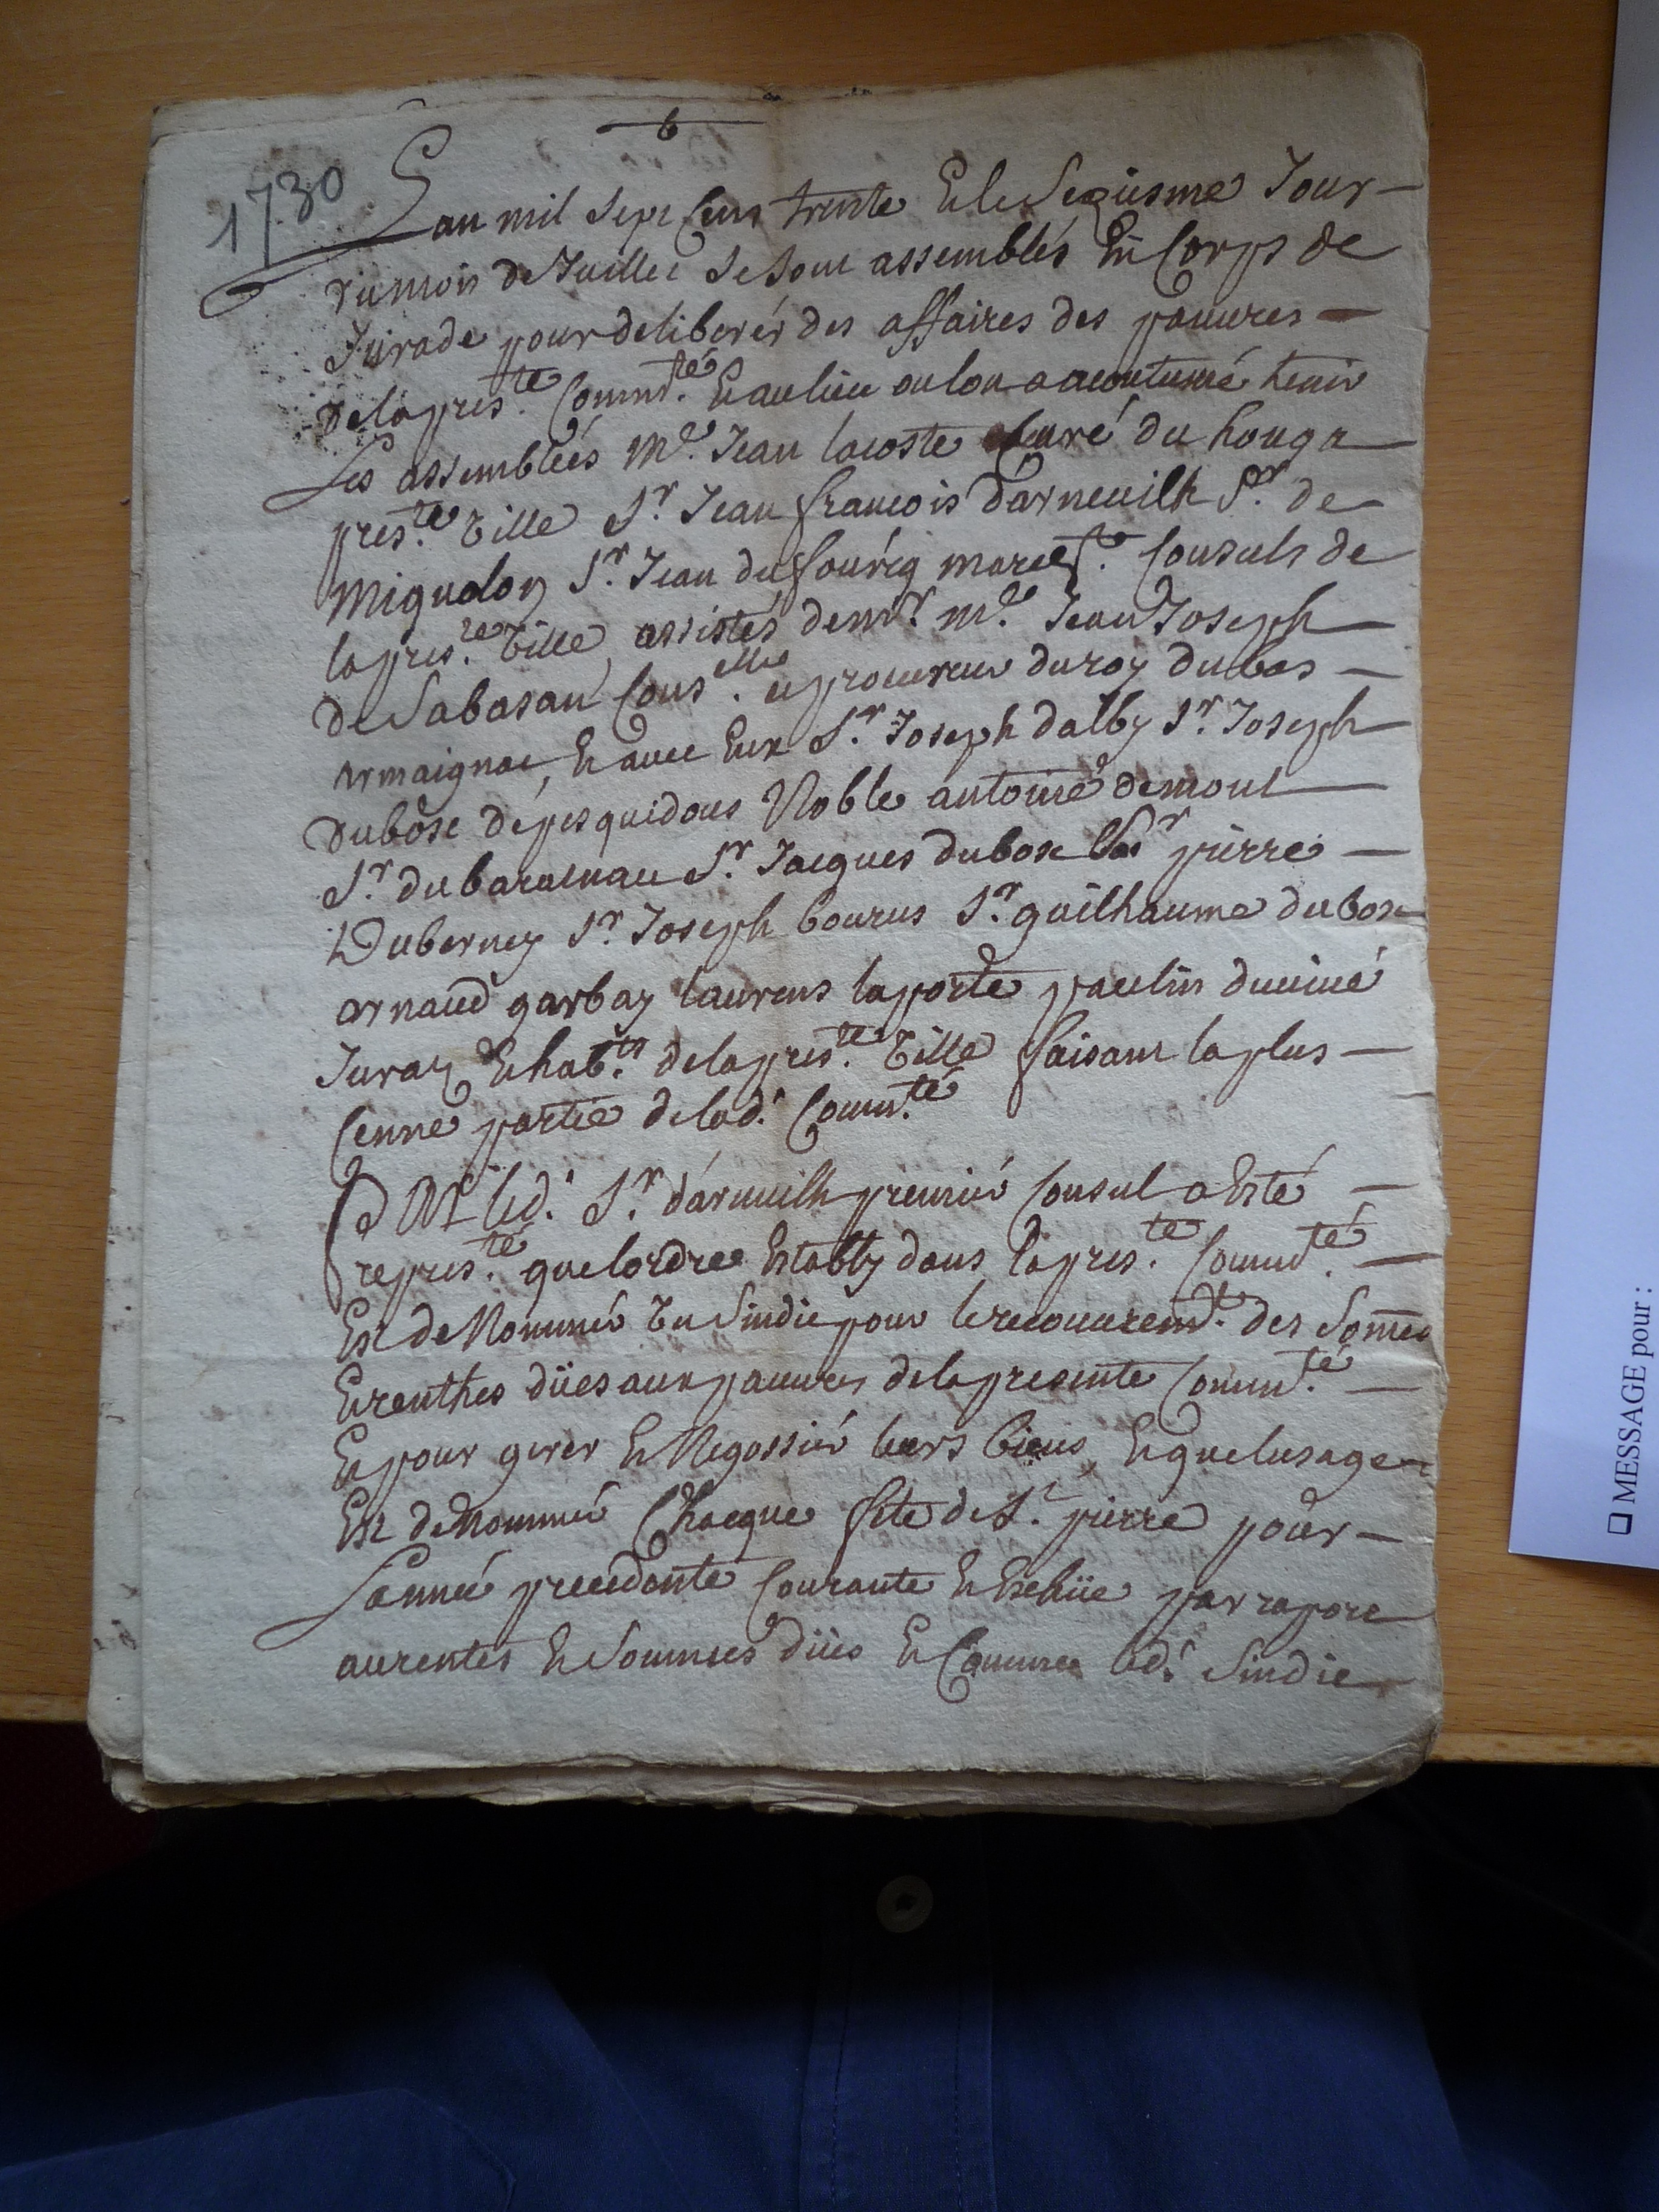 6
1730
Lan mil sept Cens trente Et le Seziesme Jour
du mois de Juillet se sont assemblés En Corps de
Jurade pour deliberer des affaires des pauures
de la pres.te Comm.té Et au lieu ou lon a acoutumé tenir
Les assemblées M.e Jean lacoste Curé du houga
pres.te Ville S.r Jean francois d'arneuilh S.r de
Miqudon S.r Jean dufourcq Consuls de
la pres.te Ville, assistés de m.r m.e Jean Joseph
de Sabasan Cons.eller et procureur du roy du bas
armaignac, Et avec Eux S.r Joseph dalby S.r Joseph
dubosc depesquidous Noble antoine demont
S.r dubaracnau S.r Jacques dubosc pierre
Duberney S.r Joseph bourus S.r guilhaume dubosc
arnaud garbay laurens laporte paulin
Juratz Et hab.ts de la pres.te Ville faisant la plus
Cenne partie de lad.t Comm.té
PAR led.t S.r d'arneuilh premier Consul a Esté
repres.té que lordre Estably dans la pres.te Comm.té
Est de Nommer Un Sindic pour le recouurem.t des Sommes
Et renthes dües aux pauures de la presente Comm.té
Et pour gerer Et Negossier leurs biens, Et que lusage
Est de Nommer Chacque fete de S.t pierre pour
Lannée precedante Courante Et Echüe par raport
aux rentes Et Sommes düés Et Comme led.t Sindic
MESSAGE pour :